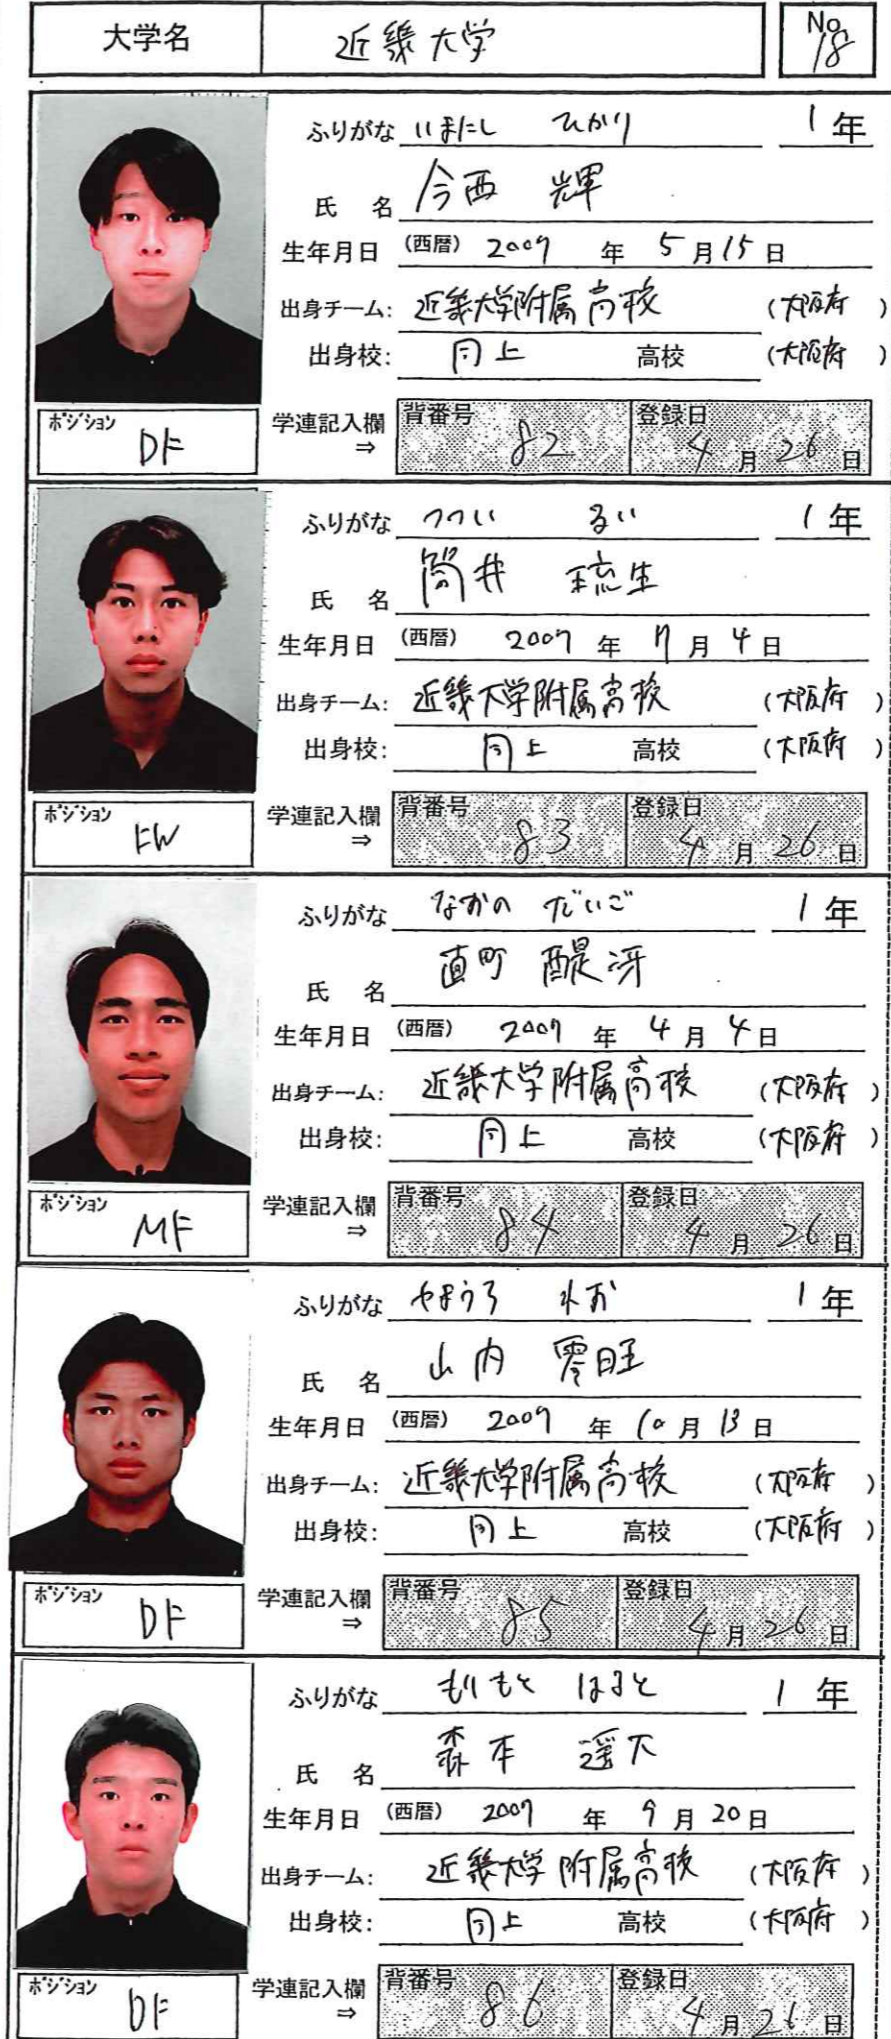 大学名 近畿大学 No. 18
ふりがな いまにし ひかり 1年
氏名 今西 輝
生年月日 (西暦) 2007年 5月15日
出身チーム: 近畿大学附属高校 (大阪府)
出身校: 同上 高校 (大阪府)
ポジション DF 学連記入欄⇒ 背番号 82 登録日 4月26日
ふりがな つつい るい 1年
氏名 筒井 琉生
生年月日 (西暦) 2007年 月4日
出身チーム: 近畿大学附属高校 (大阪府)
出身校: 同上 高校 (大阪府)
ポジション FW 学連記入欄⇒ 背番号 83 登録日 4月26日
ふりがな なかの だいご 1年
氏名 直町 醍冴
生年月日 (西暦) 2007年 4月4日
出身チーム: 近畿大学附属高校 (大阪府)
出身校: 同上 高校 (大阪府)
ポジション MF 学連記入欄⇒ 背番号 84 登録日 4月26日
ふりがな やまうち れお 1年
氏名 山内 零旺
生年月日 (西暦) 2007年 10月13日
出身チーム: 近畿大学附属高校 (大阪府)
出身校: 同上 高校 (大阪府)
ポジション DF 学連記入欄⇒ 背番号 85 登録日 4月26日
ふりがな もりもと はると 1年
氏名 森本 遥大
生年月日 (西暦) 2007年 9月20日
出身チーム: 近畿大学附属高校 (大阪府)
出身校: 同上 高校 (大阪府)
ポジション DF 学連記入欄⇒ 背番号 86 登録日 4月26日